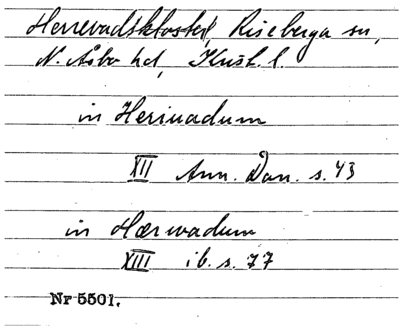 Herrevadskloster, Riseberga sn,
N. Åsbo hd, Krist. l.
in Heriuadum
XII Ann. Dan. s. 43
in Hærwadum
XIII ib. s. 77
Nr 5501.